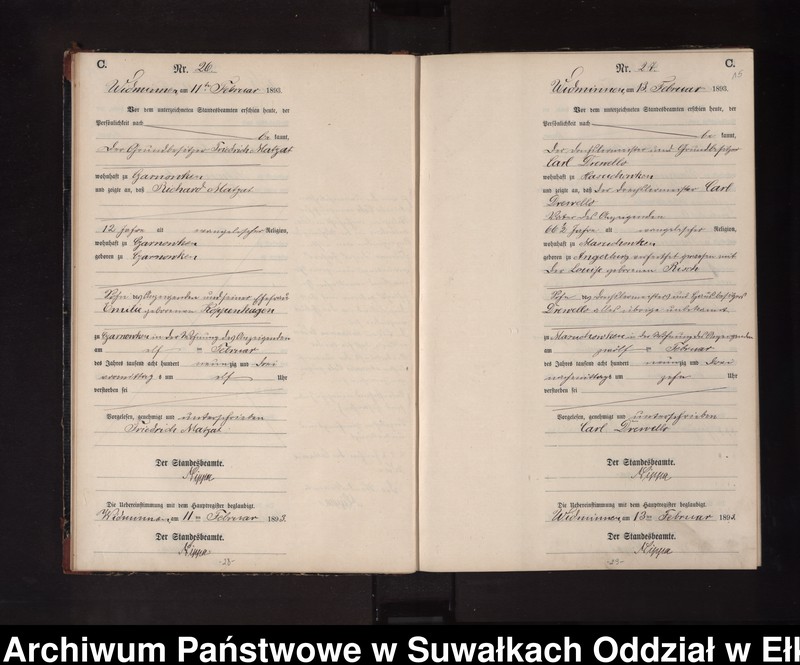 C.
Nr. 26.
Widminnen am 11ten Februar 1893.
Vor dem unterzeichneten Standesbeamten erschien heute, der
Persönlichkeit nach
be kannt,
der Grundbesitzer Friedrich Matzat
wohnhaft zu Garnowken
und zeigte an, daß Richard Matzat
12 Jahre alt evangelischer Religion,
wohnhaft zu Garnowken
geboren zu Garnowken
Sohn des Anzeigenden und seiner Ehefrau
geborenen Koppenhagen
zu Garnowken in der Wohnung des Anzeigenden
am elf ten Februar
des Jahres tausend acht hundert neunzig und drei
vormittag s um elf Uhr
verstorben sei
Vorgelesen, genehmigt und unterschrieben
Friedrich Matzat
Der Standesbeamte.
Nippa
Die Uebereinstimmung mit dem Hauptregister beglaubigt.
Widminnen am 11ten Februar 1893.
Der Standesbeamte.
Nippa
-23-
C.
Nr. 27.
Widminnen am 13. Februar 1893.
Vor dem unterzeichneten Standesbeamten erschien heute, der
Persönlichkeit nach
be kannt,
der und Grundbesitzer
Carl Drewello
wohnhaft zu
und zeigte an, daß der Carl
Drewello
Vater des Anzeigenden
66 ½ Jahre alt evangelischer Religion,
wohnhaft zu
geboren zu Angerburg verheirathet gewesen mit
der Louise geborenen Risch
Sohn des und
Drewello alles übrige unbekannt
zu in der Wohnung des Anzeigenden
am zwölf ten Februar
des Jahres tausend acht hundert neunzig und drei
nachmittags um zehn Uhr
verstorben sei
Vorgelesen, genehmigt und unterschrieben
Carl Drewello
Der Standesbeamte.
Nippa
Die Uebereinstimmung mit dem Hauptregister beglaubigt.
Widminnen am 13ten Februar 1893.
Der Standesbeamte.
Nippa
-23-
Archiwum Państwowe w Suwałkach Oddział w Eł